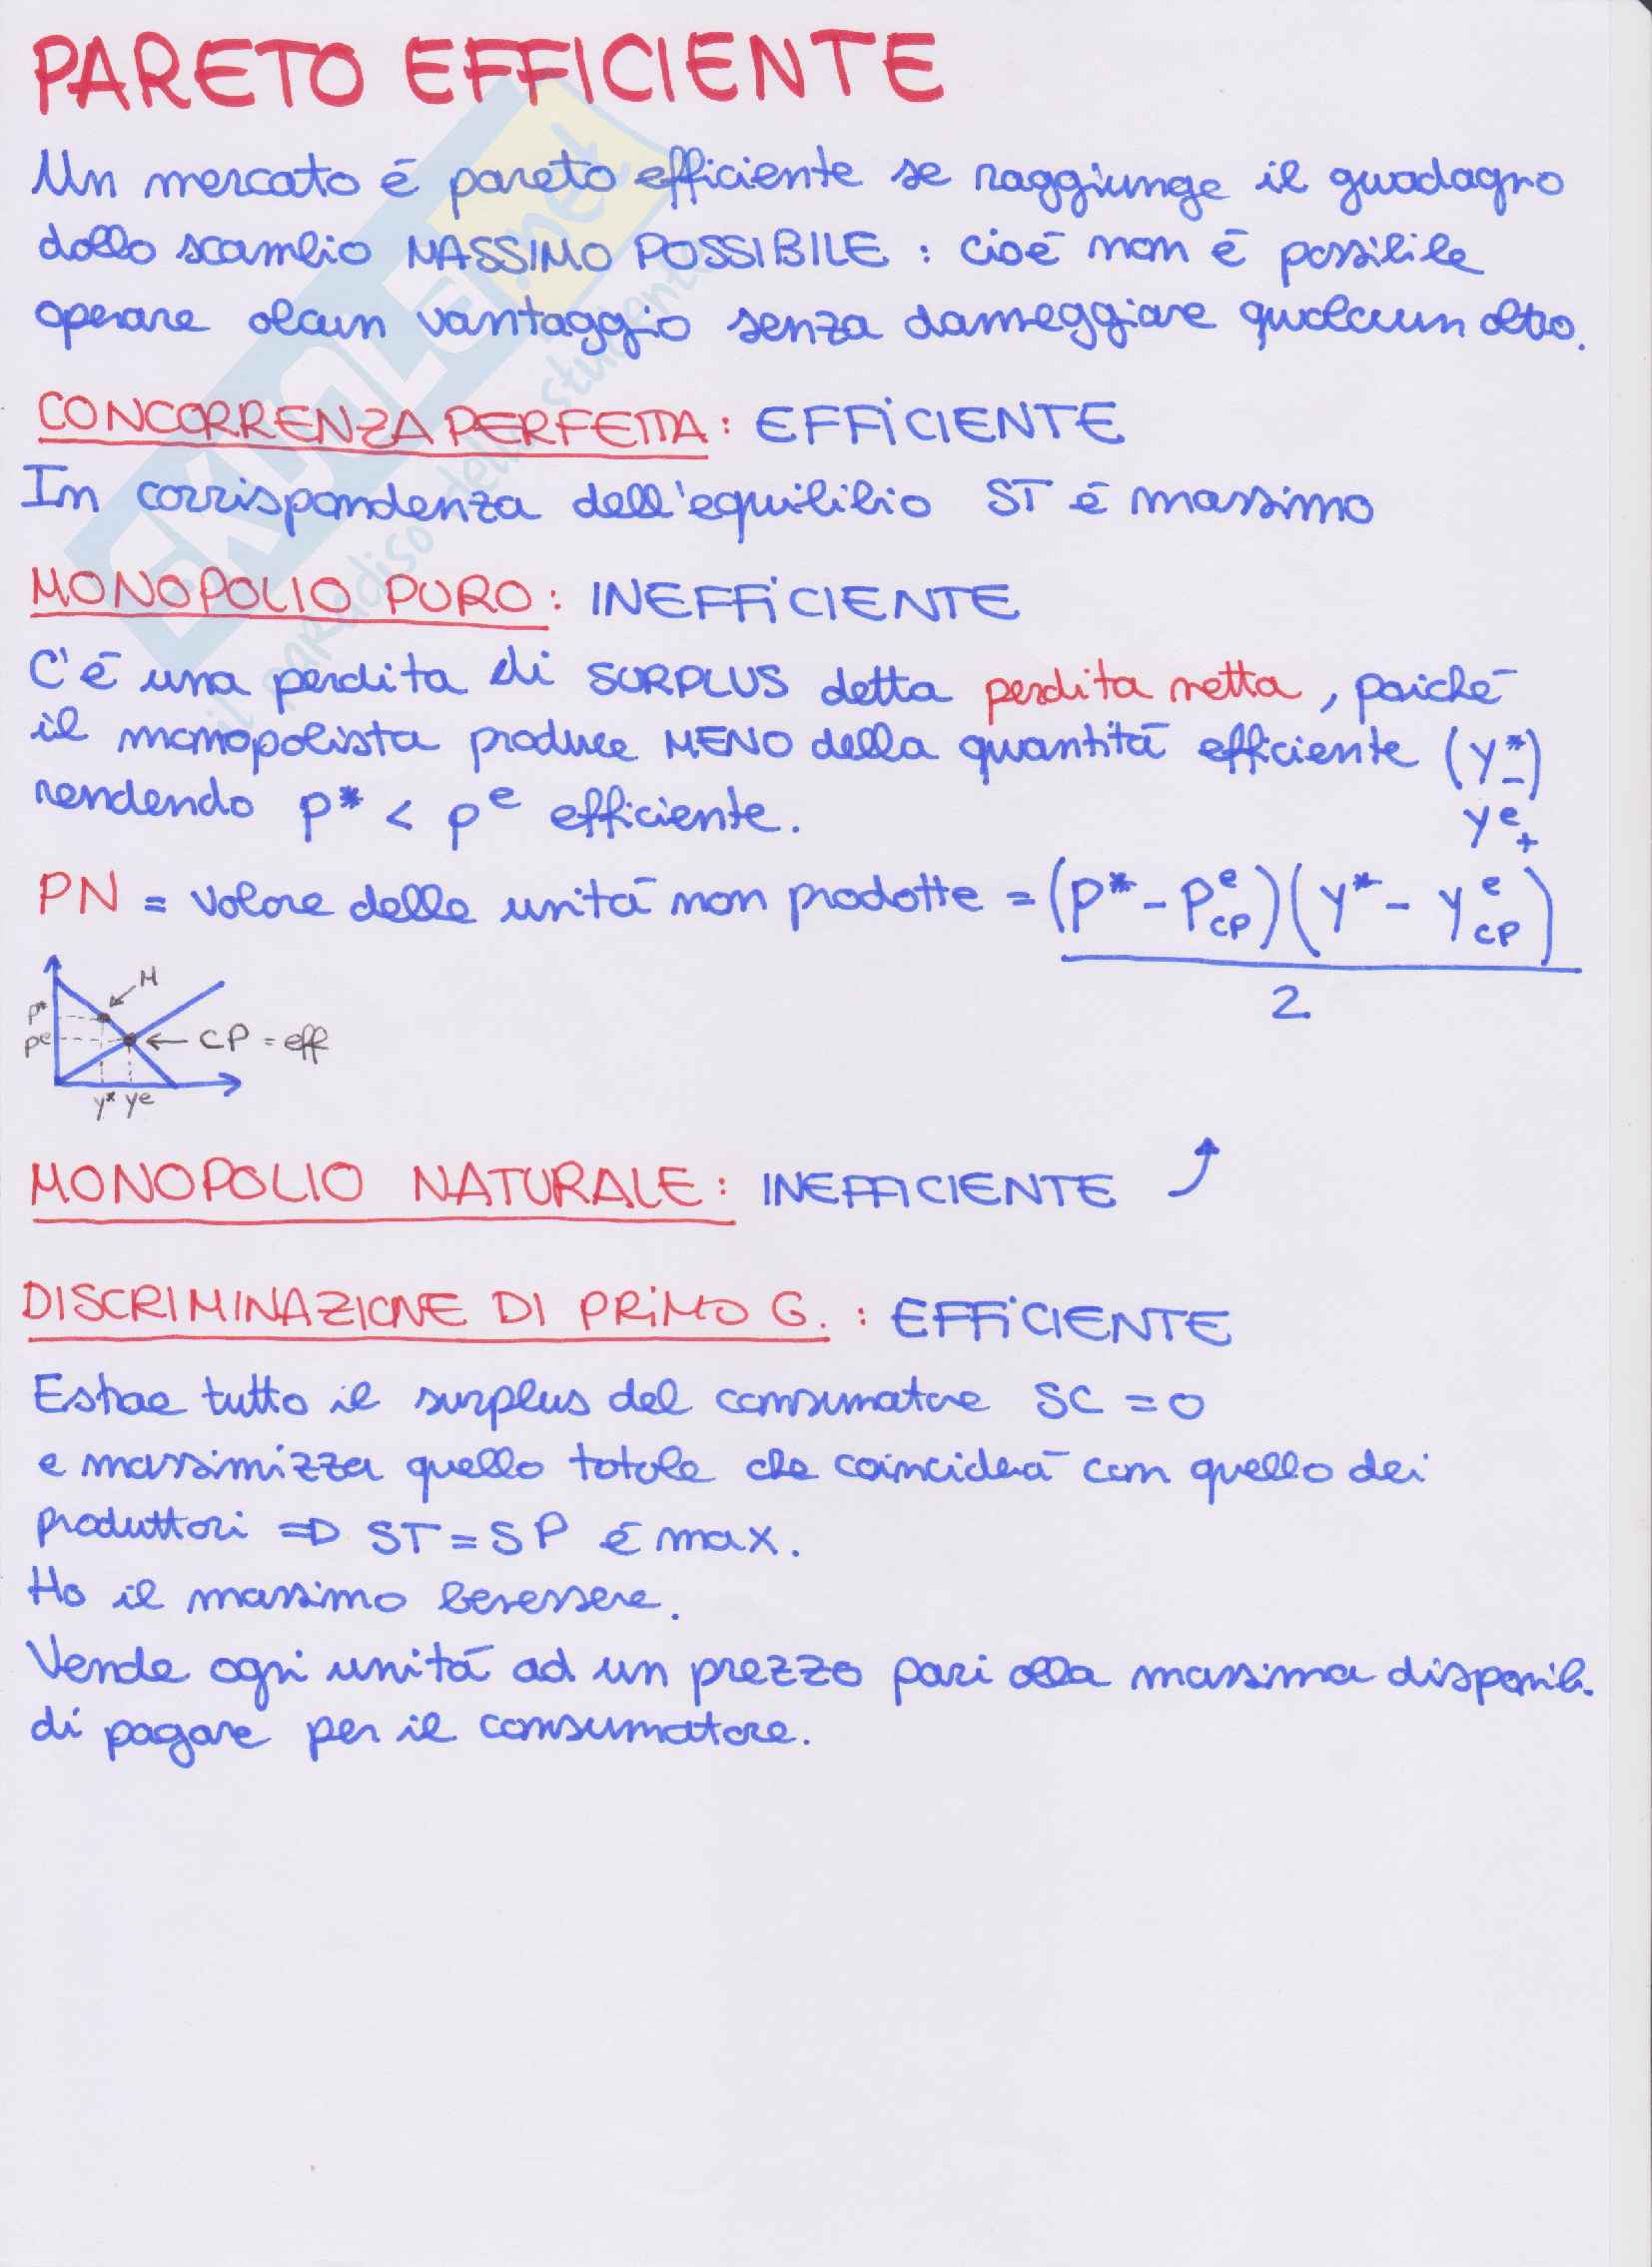 PARETO EFFICIENTE
Un mercato é pareto efficiente se raggiunge il guadagno
dallo scambio MASSIMO POSSIBILE : cioé non é possibile
operare alcun vantaggio senza danneggiare qualcun altro.
CONCORRENZA PERFETTA : EFFICIENTE
In corrispondenza dell'equilibrio ST é massimo
MONOPOLIO PURO : INEFFICIENTE
C'é una perdita di SURPLUS detta perdita netta, poiché
il monopolista produce MENO della quantitá efficiente (y*-)
rendendo p* < p^e efficiente. y^e+
PN = valore delle unitá non prodotte = (p* - p^e_cp)(y* - y^e_cp)
2
M
p*
p^e ← CP = eff
y* y^e
MONOPOLIO NATURALE : INEFFICIENTE
DISCRIMINAZIONE DI PRIMO G. : EFFICIENTE
Estrae tutto il surplus del consumatore SC = 0
e massimizza quello totale che coinciderá con quello dei
produttori => ST = SP é max.
Ho il massimo benessere.
Vende ogni unitá ad un prezzo pari alla massima disponib.
di pagare per il consumatore.
SKUOLA.net
il paradiso dello studente